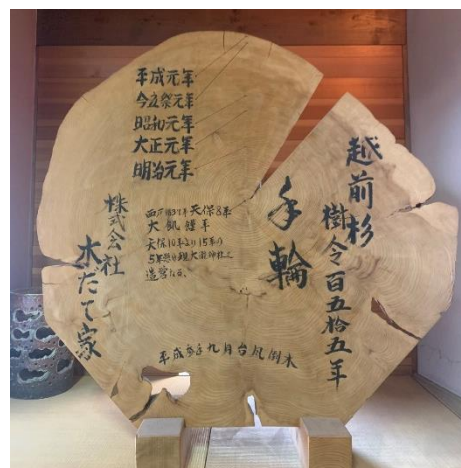 越前杉
樹令百五拾五年
年輪
平成元年
今立祭元年
昭和元年
大正元年
明治元年
西暦1837年天保8年
大飢饉年
天保10年より15年の
5年懸り現大瀧神社を
造営なる。
株式会社
木だて家
平成3年九月台風倒木